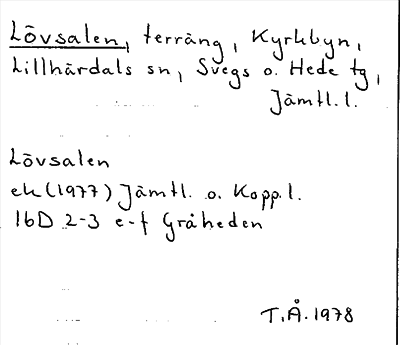 Lövsalen, terräng, Kyrkbyn,
Lillhärdals sn, Svegs o. Hede tg,
Jämtl.l.
Lövsalen
ek(1977) Jämtl. o. Kopp.l.
16D 2-3 e-f Gråheden
T.Å.1978